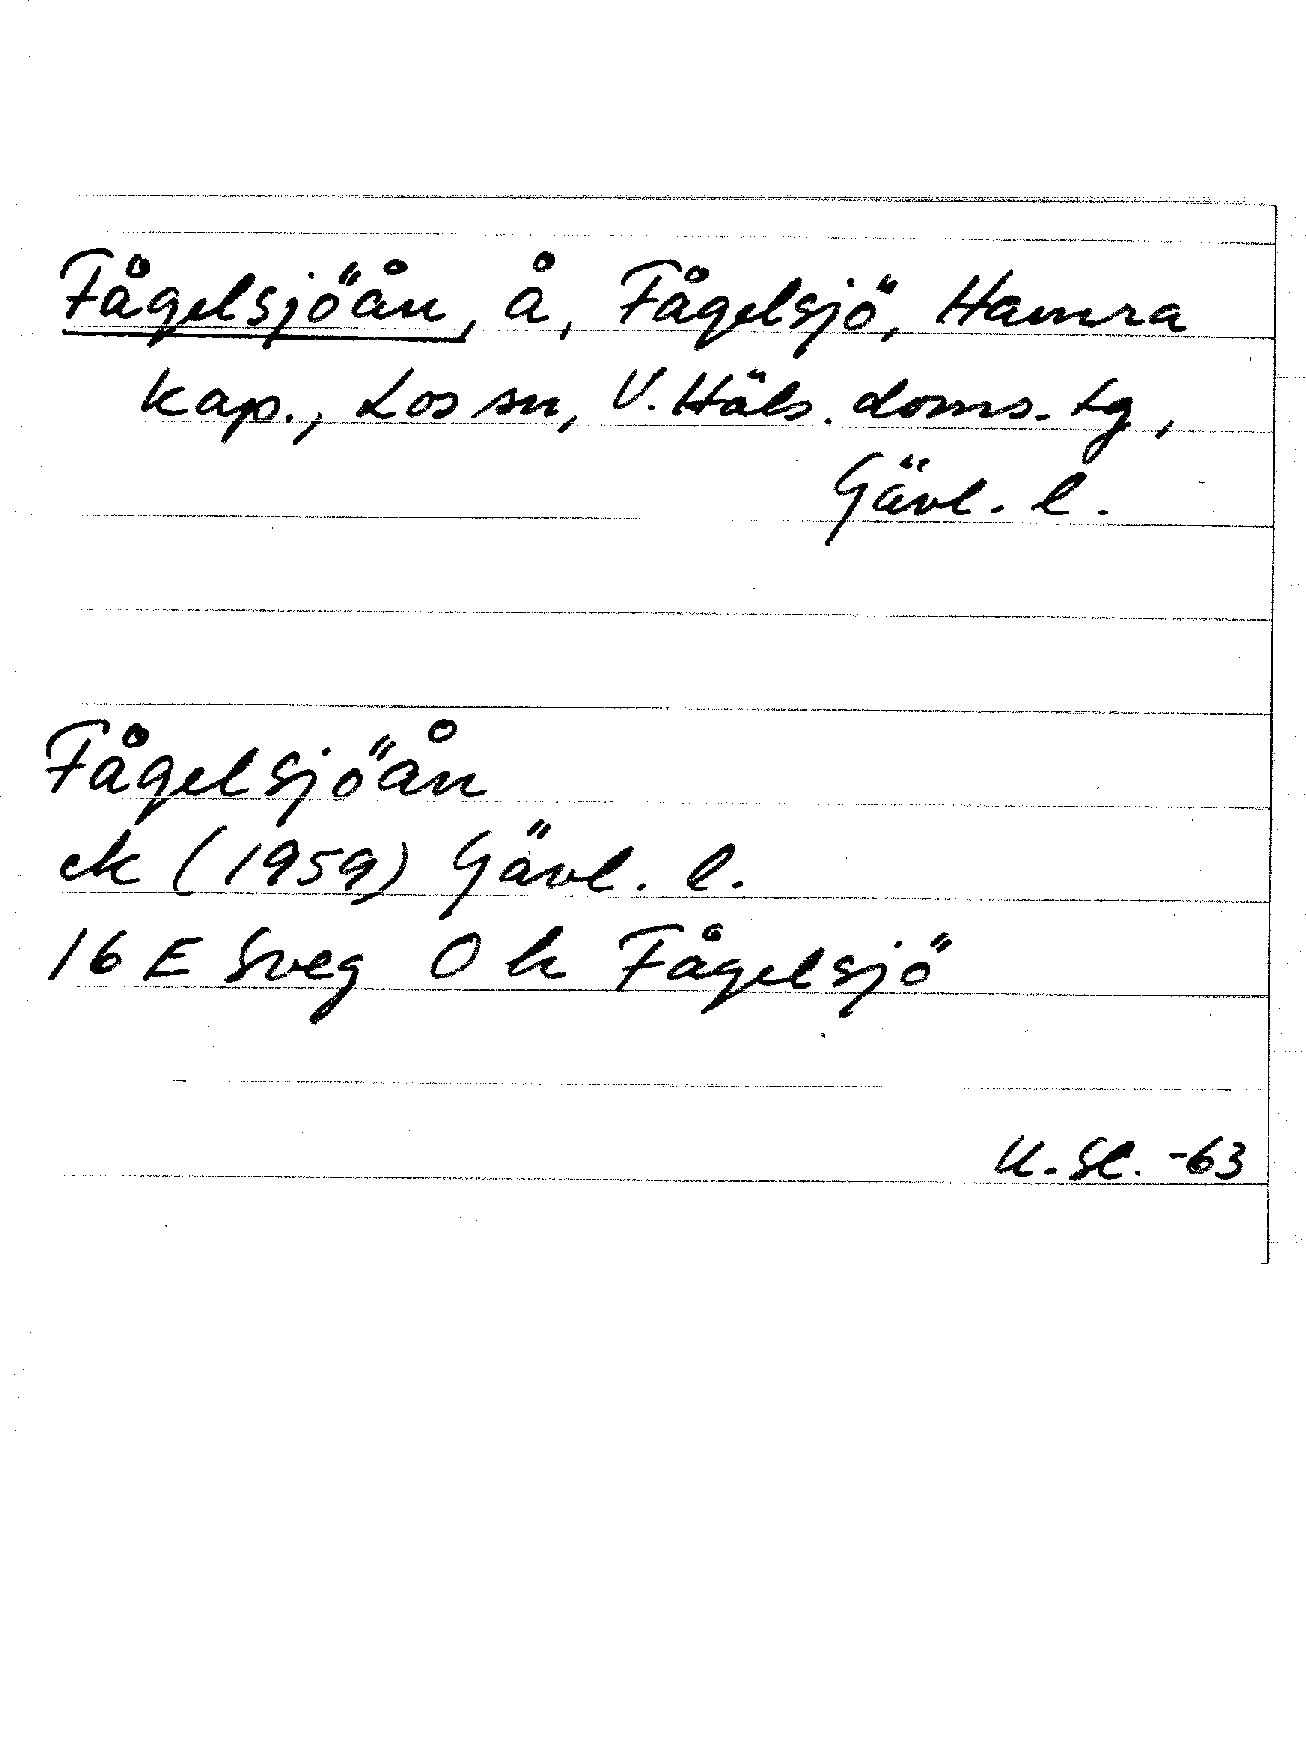 Fågelsjöån, å, Fågelsjö, Hamra
kap., Los sn, V. Häls. doms. tg,
Gävl. l.
Fågelsjöån
ek (1959) Gävl. l.
16 E Sveg 0 h Fågelsjö
U. Sl. -63